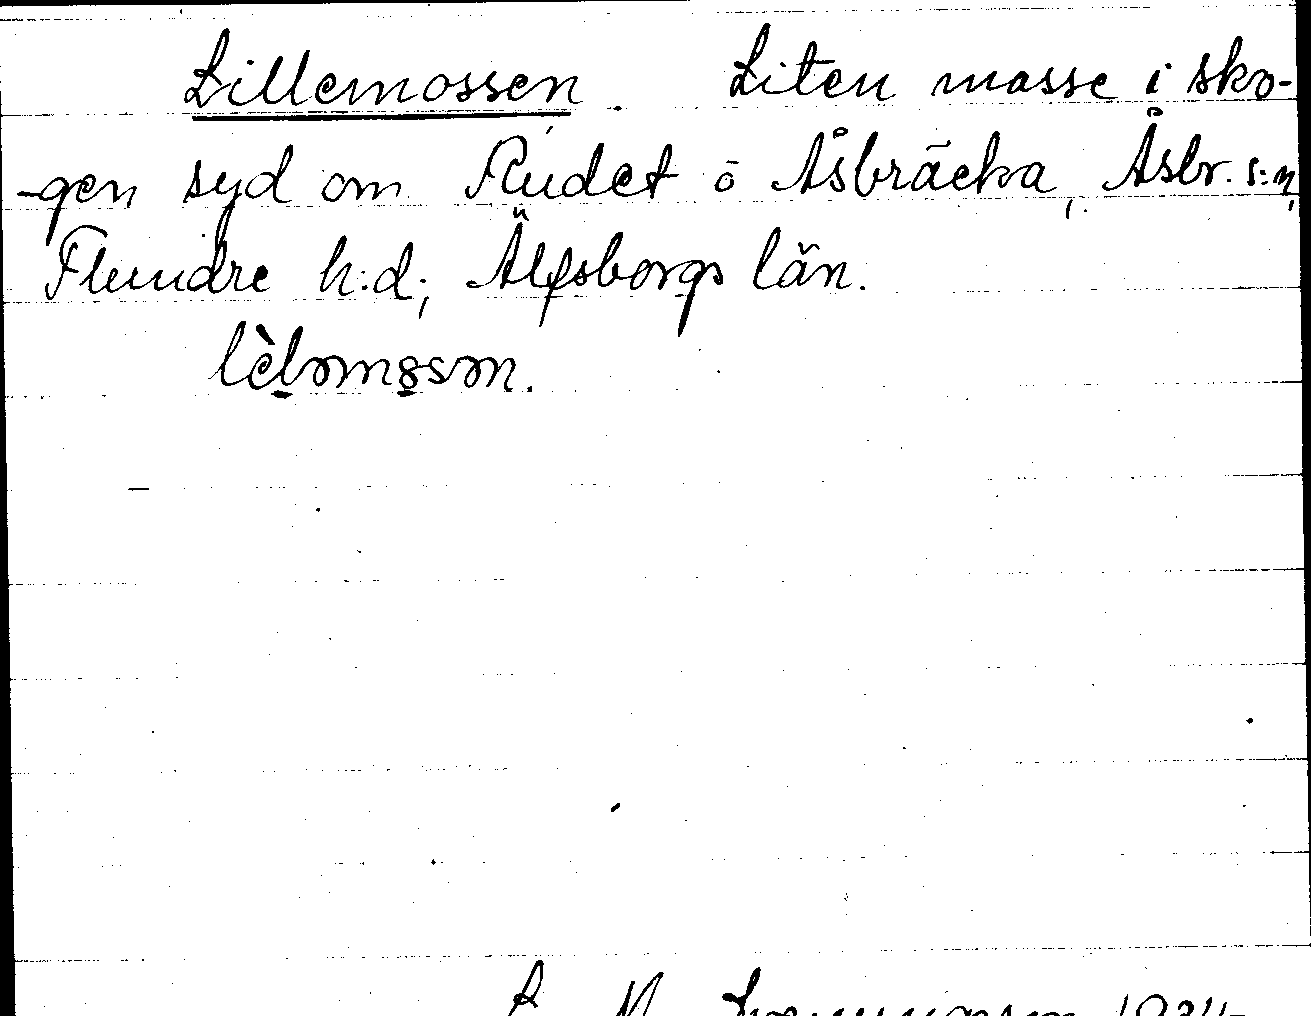 Lillemossen. Liten mosse i sko-
-gen syd om Rudet ö Åsbräcka, Åsbr. s:n,
Flundre h:d, Älfsborgs län.
lèləmosən.